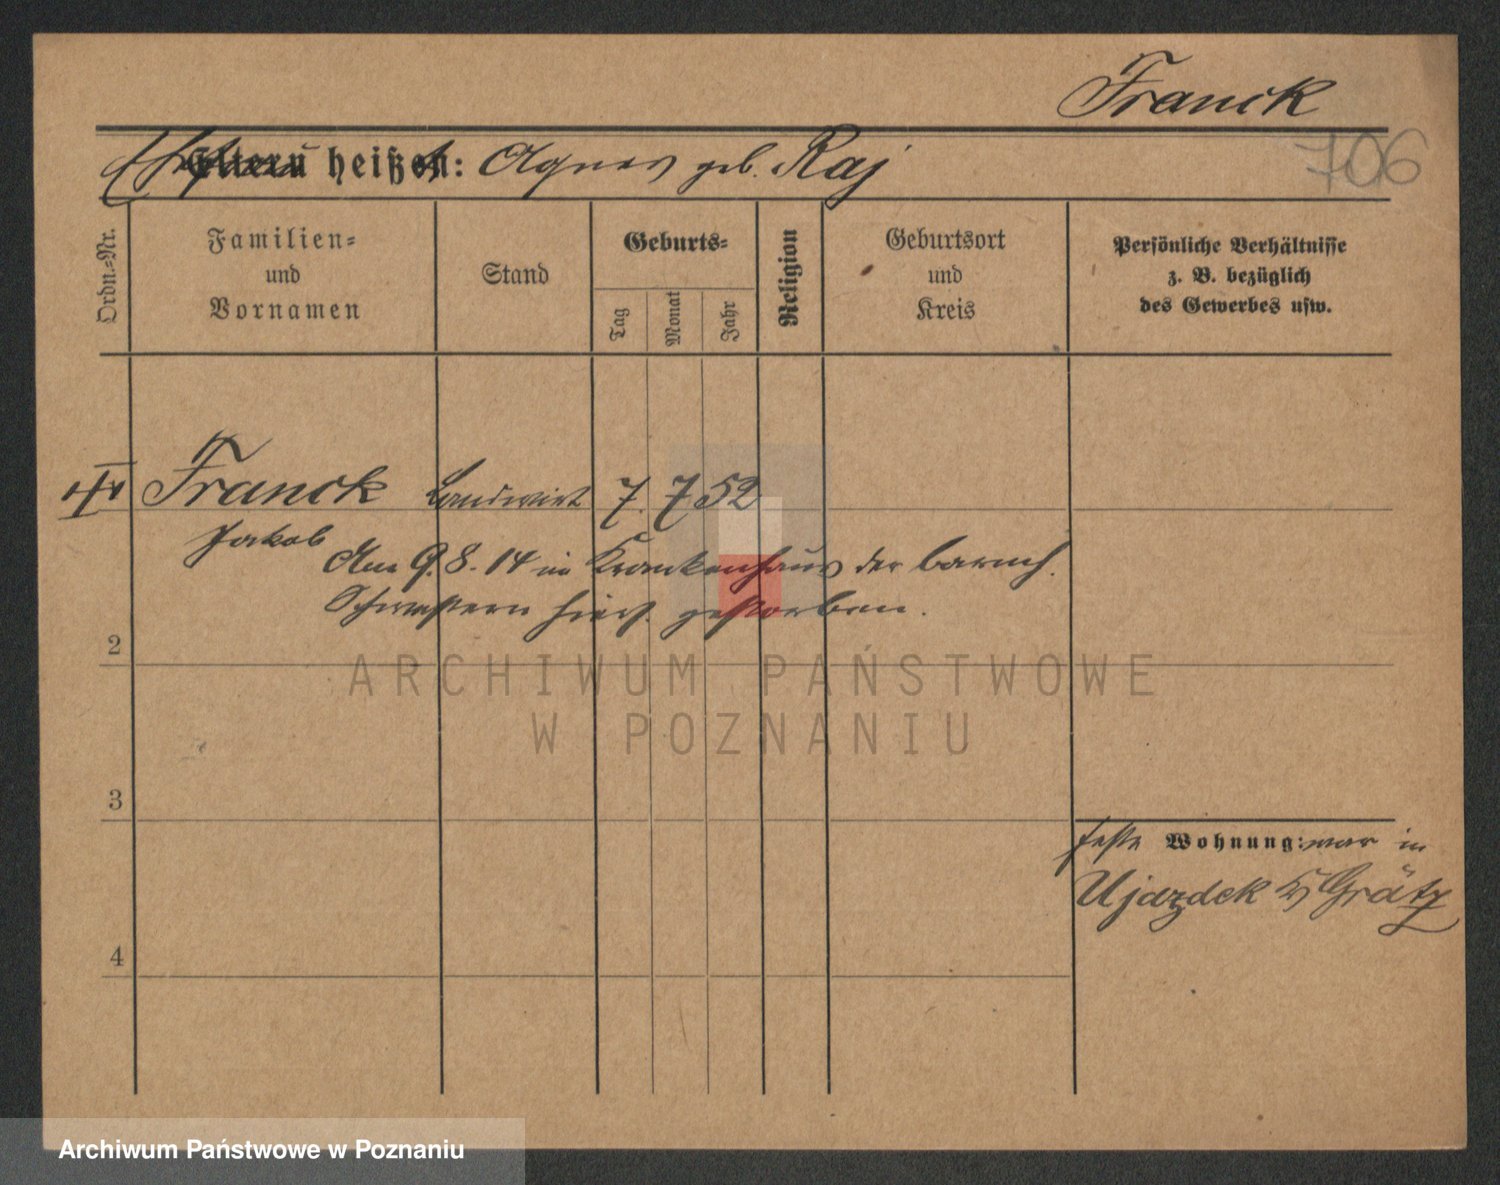 Franck
706
Ehefrau heißt: Agnes geb. Raj
Ordn.-Nr.
Familien-
und
Vornamen
Stand
Geburts-
Tag
Monat
Jahr
Religion
Geburtsort
und
Kreis
Persönliche Verhältnisse
z. B. bezüglich
des Gewerbes usw.
Franck Landwirt 7. 7 52
Jakob
Am 9.8.14 im Krankenhaus der barmh.
Schwestern hiers. gestorben.
2
ARCHIWUM PAŃSTWOWE
W POZNANIU
3
feste Wohnung: war in
Ujazdek Grätz
4
Archiwum Państwowe w Poznaniu